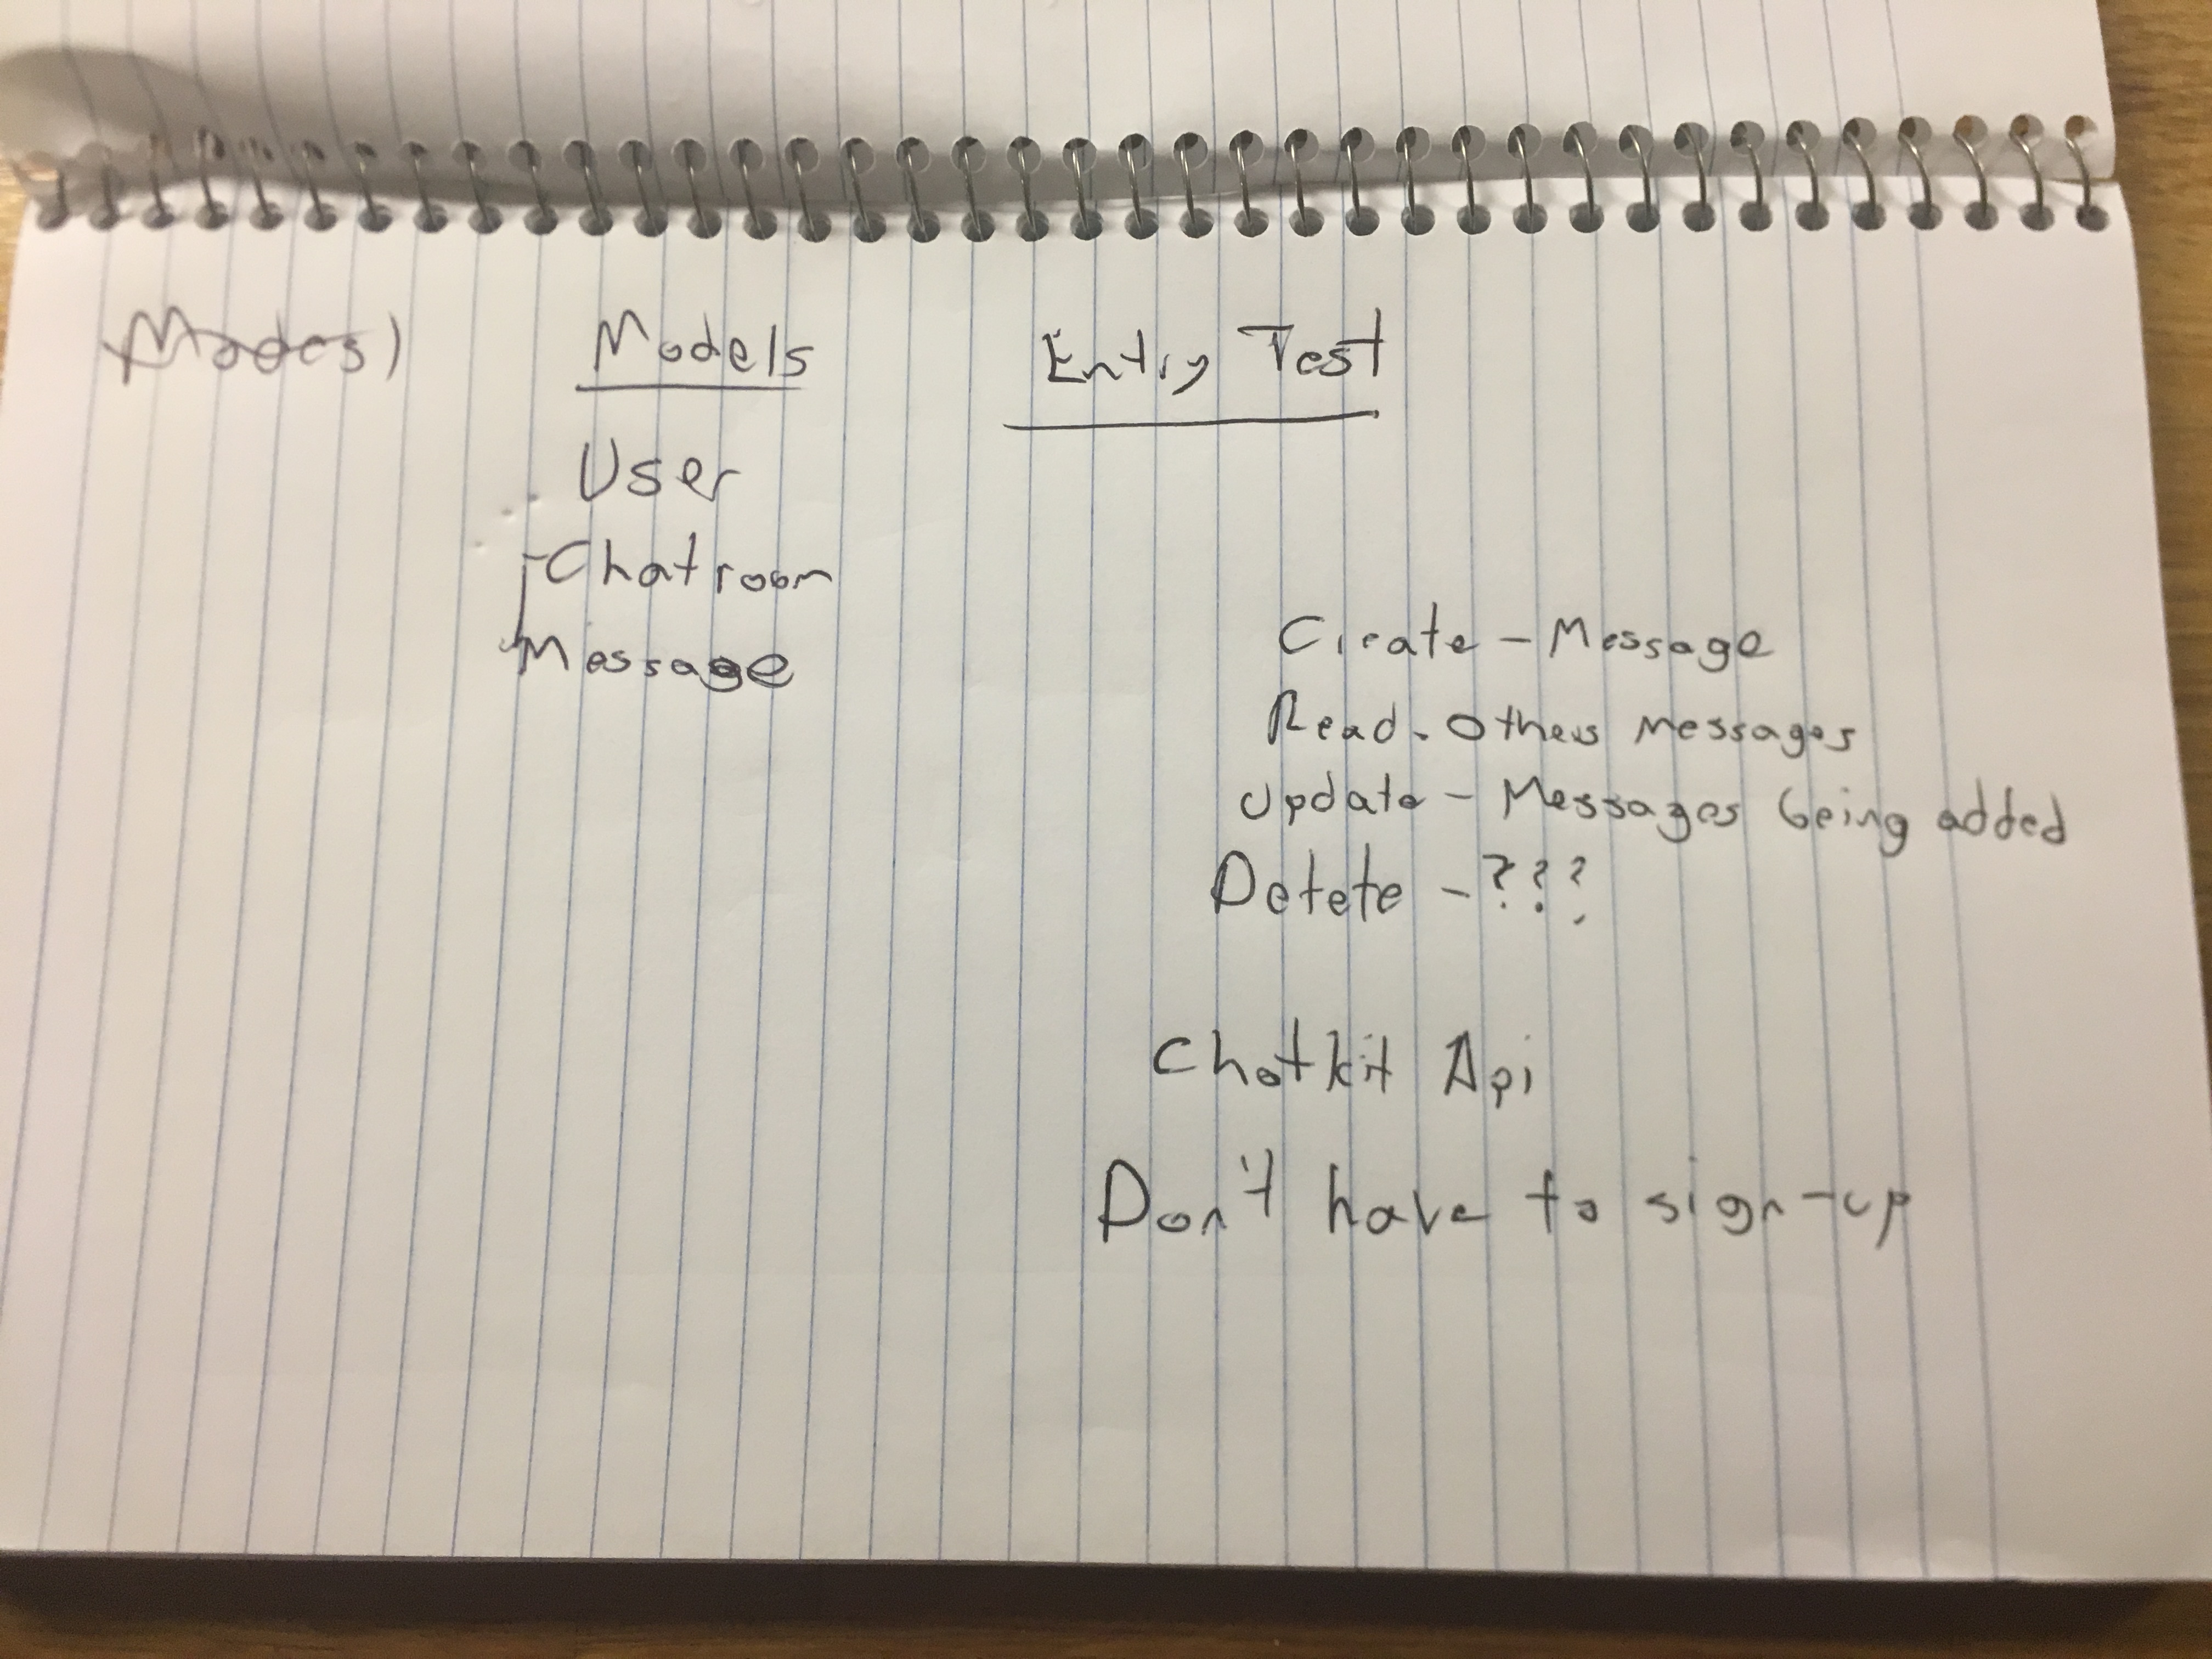 Models
User
Chatroom
Message
Entity Test
Create - Message
Read - Others Messages
Update - Messages being added
Delete - ???
Chatkit Api
Don't have to sign-up